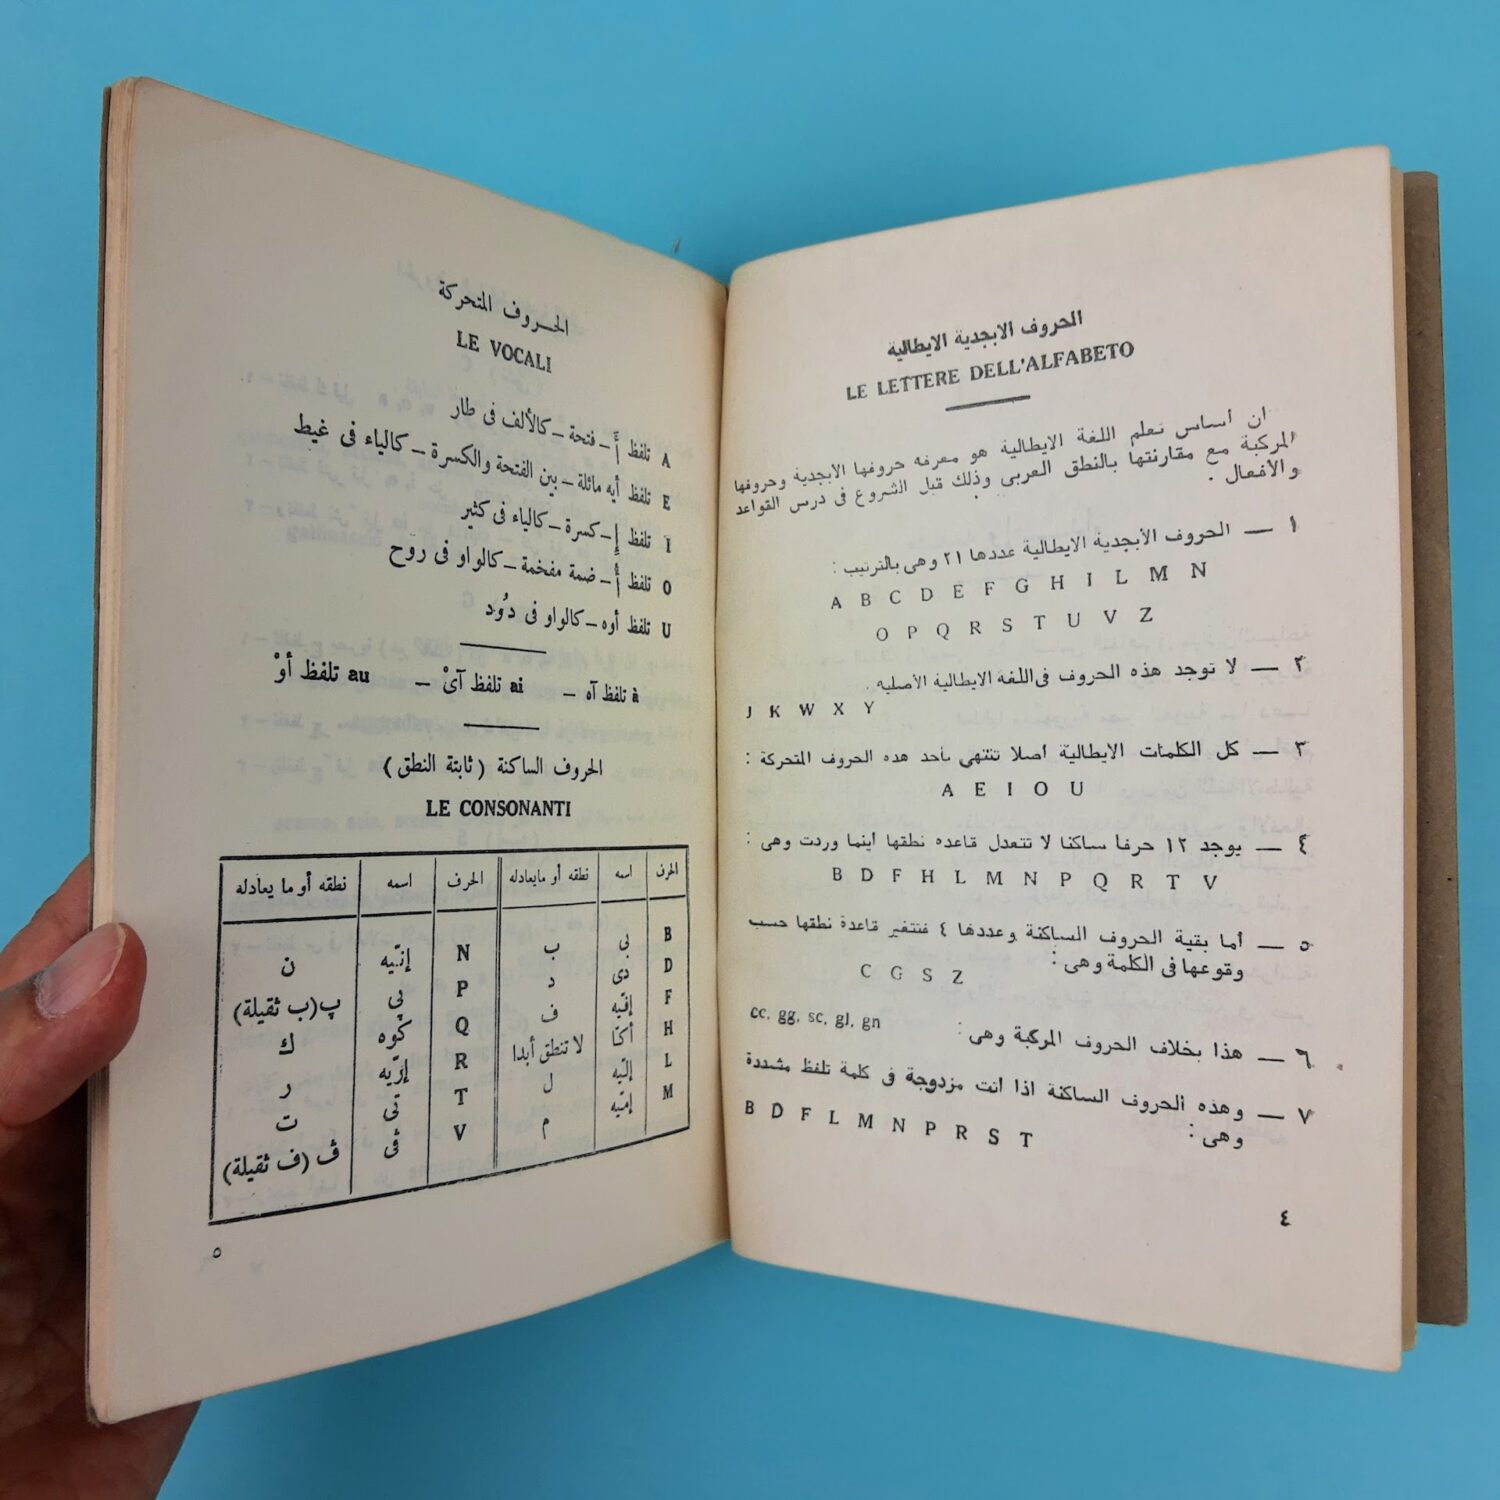 الحروف الابجدية الايطالية
LE LETTERE DELL'ALFABETO
ان أساس تعلم اللغة الايطالية هو معرفه حروفها الابجدية وحروفها
المركبة مع مقارنتها بالنطق العربى وذلك قبل الشروع فى درس القواعد
والأفعال .
١ — الحروف الأبجدية الايطالية عددها ٢١ وهى بالترتيب :
A B C D E F G H I L M N
O P Q R S T U V Z
٢ — لا توجد هذه الحروف فى اللغة الايطالية الأصليه .
J K W X Y
٣ — كل الكلمات الايطالية أصلا تنتهى بأحد هذه الحروف المتحركة :
A E I O U
٤ — يوجد ١٢ حرفا ساكنا لا تتعدل قاعده نطقها أينما وردت وهى :
B D F H L M N P Q R T V
٥ — أما بقية الحروف الساكنة وعددها ٤ فتتغير قاعدة نطقها حسب
وقوعها فى الكلمة وهى :
C G S Z
٦ — هذا بخلاف الحروف المركبة وهى : cc, gg, sc, gl, gn
٧ — وهذه الحروف الساكنة اذا أتت مزدوجة فى كلمة تلفظ مشددة
وهى :
B D F L M N P R S T
٤
الحروف المتحركة
LE VOCALI
A تلفظ أَ – فتحة – كالألف فى طار
E تلفظ أيه مائلة – بين الفتحة والكسرة – كالياء فى غيط
I تلفظ إِ – كسرة – كالياء فى كثير
O تلفظ أُ – ضمة مفخمة – كالواو فى روح
U تلفظ أوه – كالواو فى دُود
à تلفظ آه – ai تلفظ آىْ – au تلفظ أوْ
الحروف الساكنة ( ثابتة النطق )
LE CONSONANTI
الحرف اسمه نطقه أو مايعادله الحرف اسمه نطقه أو ما يعادله
B بى ب N إنّيه ن
D دى د P پى پ (ب ثقيلة)
F إفّيه ف Q كوه ك
H أكّا لا تنطق أبدا R إرّيه ر
L إلّيه ل T تى ت
M إمّيه م V ڤى ڤ (ف ثقيلة)
٥